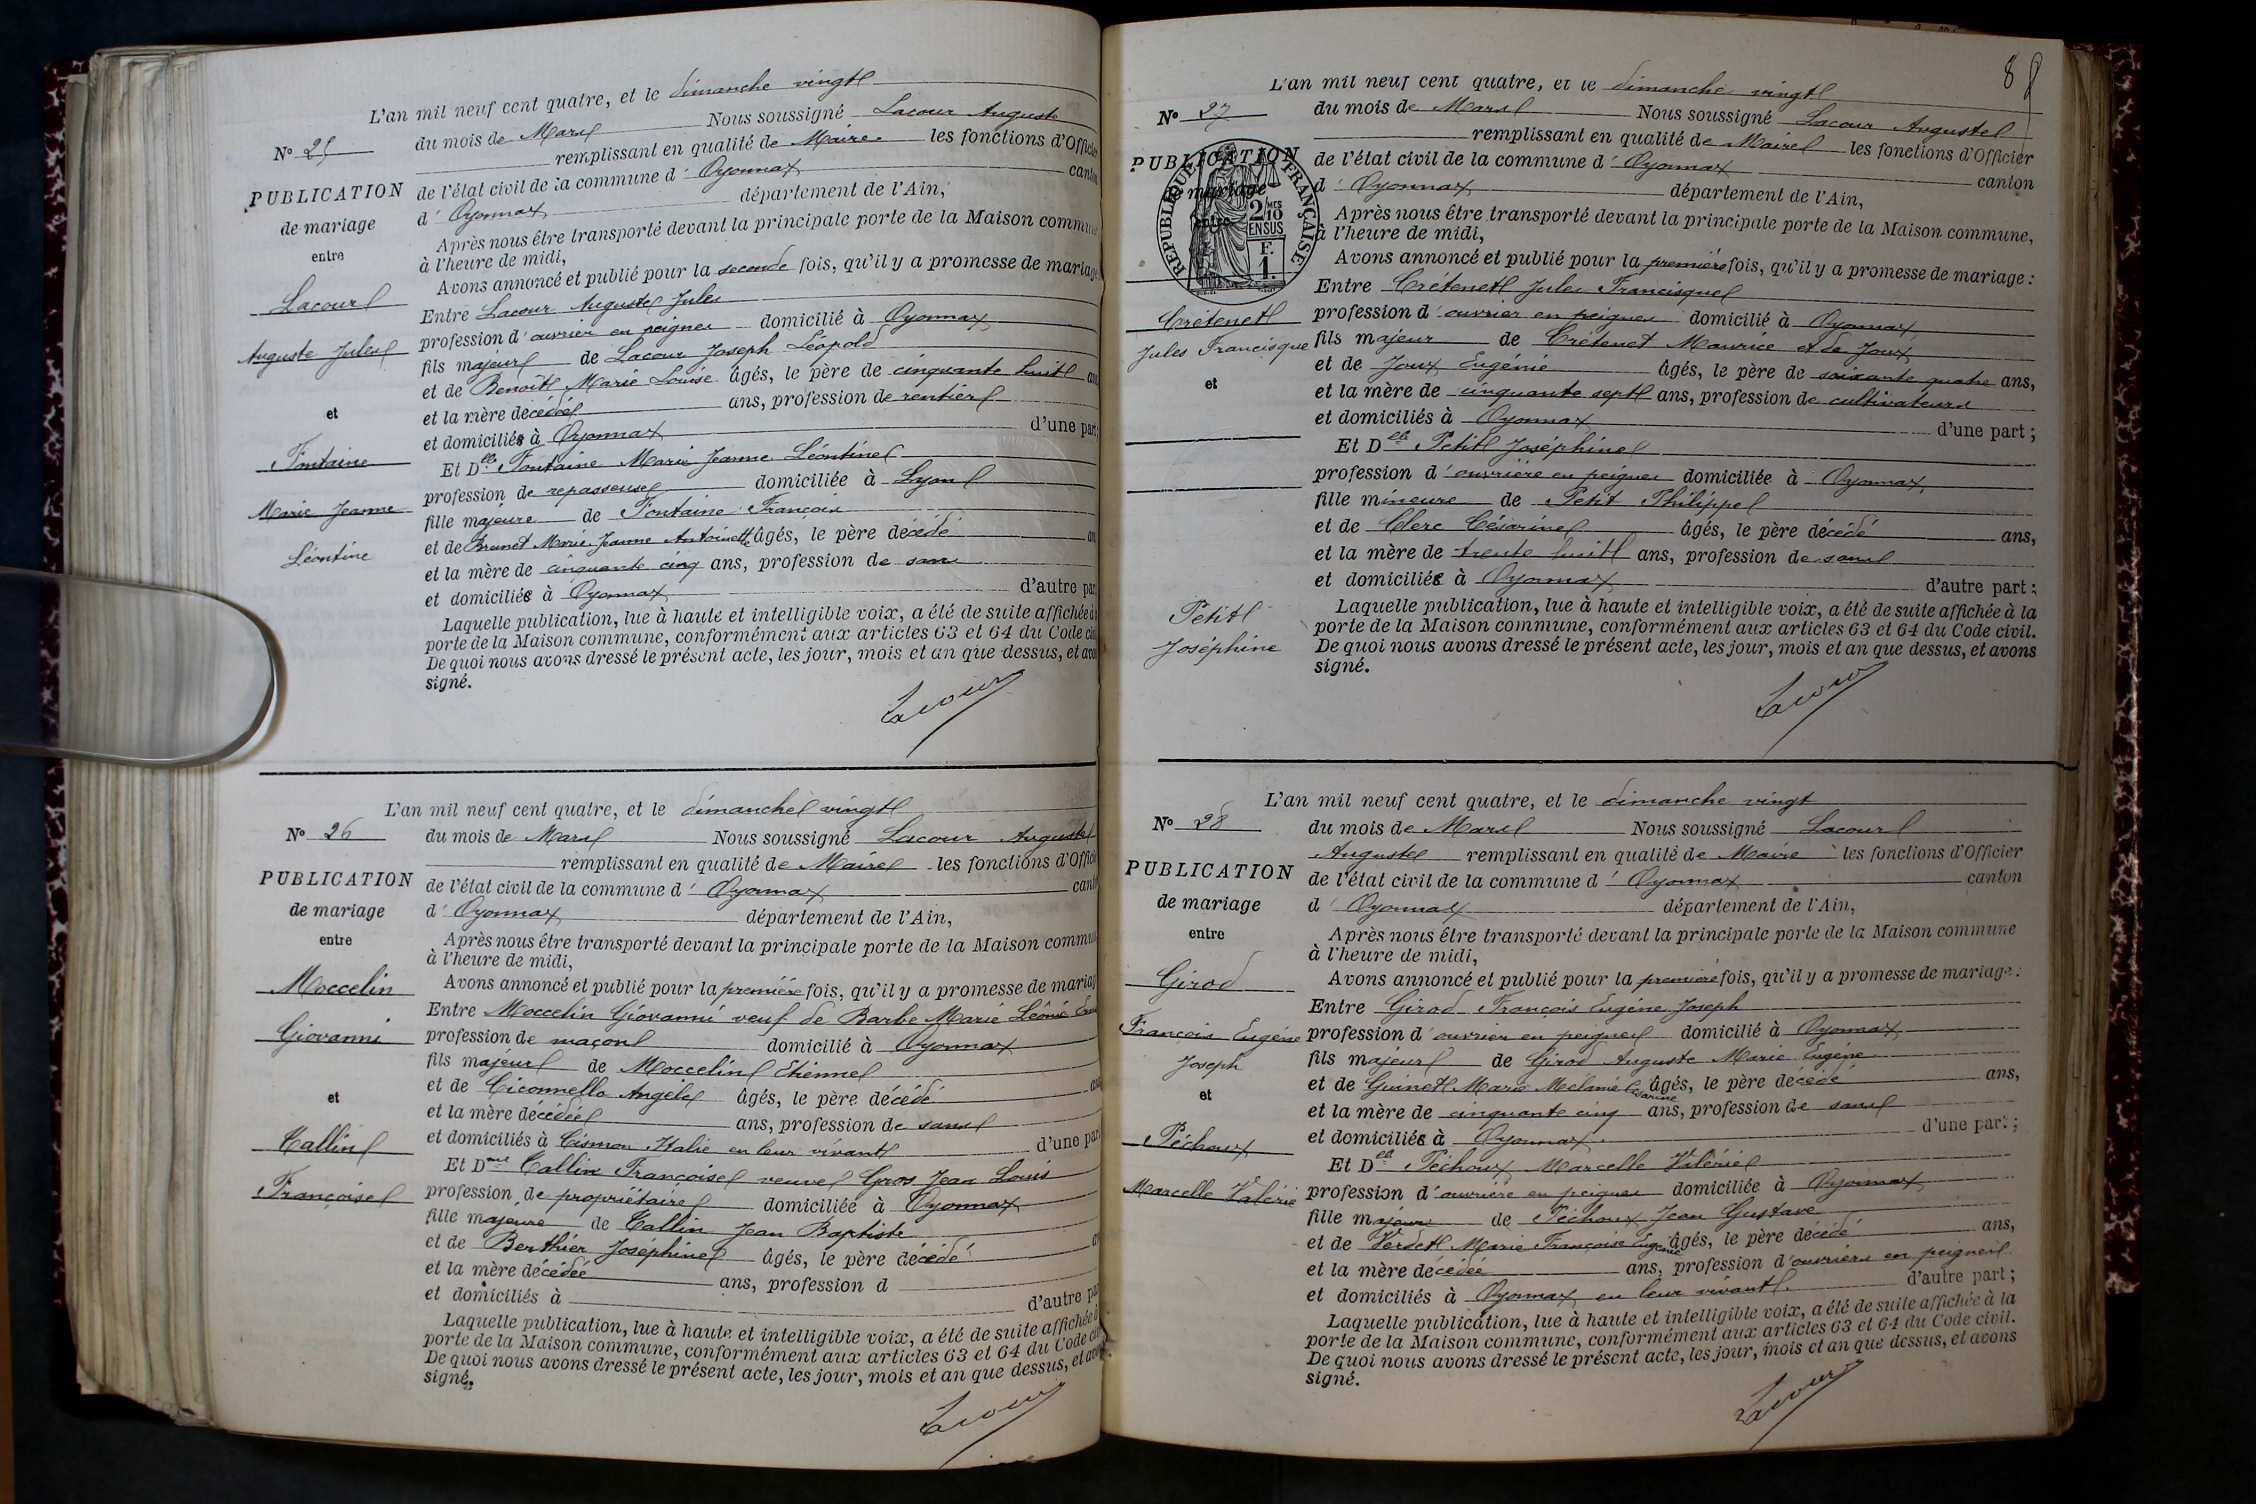 L'an mil neuf cent quatre, et le dimanche vingt
N° 25
du mois de Mars Nous soussigné Lacour Auguste
remplissant en qualité de Maire les fonctions d'Officier
PUBLICATION
de mariage
entre
Lacour
Auguste Jules
et
Fontaine
Marie Jeanne
Léontine
de l'état civil de la commune d' Oyonnax canton
d' Oyonnax département de l'Ain,
Après nous être transporté devant la principale porte de la Maison commune
à l'heure de midi,
Avons annoncé et publié pour la seconde fois, qu'il y a promesse de mariage
Entre Lacour Auguste Jules
profession d' ouvrier en peignes domicilié à Oyonnax
fils majeur de Lacour Joseph Léopold
et de Benoît Marie Louise âgés, le père de cinquante huit ans
et la mère décédée ans, profession de rentier
et domiciliés à Oyonnax d'une part;
Et Dlle Fontaine Marie Jeanne Léontine
profession de repasseuse domiciliée à Lyon
fille majeure de Fontaine François
et de Brunet Marie Jeanne Antoinette âgés, le père décédé an
et la mère de cinquante cinq ans, profession de sans
et domiciliée à Oyonnax d'autre par
Laquelle publication, lue à haute et intelligible voix, a été de suite affichée à
porte de la Maison commune, conformément aux articles 63 et 64 du Code civ
De quoi nous avons dressé le présent acte, les jour, mois et an que dessus, et avo
signé.
Lacour
L'an mil neuf cent quatre, et le dimanche vingt
N° 26
du mois de Mars Nous soussigné Lacour Auguste
remplissant en qualité de Maire les fonctions d'Offici
PUBLICATION
de mariage
entre
Moccelin
Giovanni
et
Callin
Françoise
de l'état civil de la commune d' Oyonnax cant
d' Oyonnax département de l'Ain,
Après nous être transporté devant la principale porte de la Maison commu
à l'heure de midi,
Avons annoncé et publié pour la première fois, qu'il y a promesse de mariag
Entre Moccelin Giovanni veuf de Barbe Marie Léonie
profession de maçon domicilié à Oyonnax
fils majeur de Moccelin Etienne
et de Ciconnello Angèle âgés, le père décédé ans
et la mère décédée ans, profession de sans
et domiciliés à Cismon Italie en leur vivant d'une par
Et Dme Callin Françoise veuve Gros Jean Louis
profession de propriétaire domiciliée à Oyonnax
fille majeure de Callin Jean Baptiste
et de Berthier Joséphine âgés, le père décédé
et la mère décédée ans, profession d
et domiciliés à d'autre pa
Laquelle publication, lue à haute et intelligible voix, a été de suite affichée à
porte de la Maison commune, conformément aux articles 63 et 64 du Code ci
De quoi nous avons dressé le présent acte, les jour, mois et an que dessus, et avo
signé.
Lacour
8
L'an mil neuf cent quatre, et le dimanche vingt
N° 27
du mois de Mars Nous soussigné Lacour Auguste
remplissant en qualité de Maire les fonctions d'Officier
PUBLICATION
de mariage
entre
RÉPUBLIQUE FRANÇAISE
2 MES
10
EN SUS
F.
1.
Crétenet
Jules Francisque
et
Petit
Joséphine
de l'état civil de la commune d' Oyonnax canton
d' Oyonnax département de l'Ain,
Après nous être transporté devant la principale porte de la Maison commune,
à l'heure de midi,
Avons annoncé et publié pour la première fois, qu'il y a promesse de mariage:
Entre Crétenet Jules Francisque
profession d' ouvrier en peignes domicilié à Oyonnax
fils majeur de Crétenet Maurice et de Joux
et de Joux Eugénie âgés, le père de soixante quatre ans,
et la mère de cinquante sept ans, profession de cultivateurs
et domiciliés à Oyonnax d'une part;
Et Dlle Petit Joséphine
profession d' ouvrière en peignes domiciliée à Oyonnax
fille mineure de Petit Philippe
et de Clerc Césarine âgés, le père décédé ans,
et la mère de trente huit ans, profession de sans
et domiciliée à Oyonnax d'autre part;
Laquelle publication, lue à haute et intelligible voix, a été de suite affichée à la
porte de la Maison commune, conformément aux articles 63 et 64 du Code civil.
De quoi nous avons dressé le présent acte, les jour, mois et an que dessus, et avons
signé.
Lacour
L'an mil neuf cent quatre, et le dimanche vingt
N° 28
du mois de Mars Nous soussigné Lacour
Auguste remplissant en qualité de Maire les fonctions d'Officier
PUBLICATION
de mariage
entre
Girod
François Eugène
Joseph
et
Péchoux
Marcelle Valérie
de l'état civil de la commune d' Oyonnax canton
d' Oyonnax département de l'Ain,
Après nous être transporté devant la principale porte de la Maison commune
à l'heure de midi,
Avons annoncé et publié pour la première fois, qu'il y a promesse de mariage:
Entre Girod François Eugène Joseph
profession d' ouvrier en peignes domicilié à Oyonnax
fils majeur de Girod Auguste Marie Eugène
et de Guinet Marie Mélanie Césarine âgés, le père décédé ans,
et la mère de cinquante cinq ans, profession de sans
et domiciliée à Oyonnax d'une part;
Et Dlle Péchoux Marcelle Valérie
profession d' ouvrière en peignes domiciliée à Oyonnax
fille majeure de Péchoux Jean Gustave
et de Verdet Marie Françoise Eugénie âgés, le père décédé ans,
et la mère décédée ans, profession d'ouvriers en peignes
et domiciliés à Oyonnax en leur vivant. d'autre part;
Laquelle publication, lue à haute et intelligible voix, a été de suite affichée à la
porte de la Maison commune, conformément aux articles 63 et 64 du Code civil.
De quoi nous avons dressé le présent acte, les jour, mois et an que dessus, et avons
signé.
Lacour